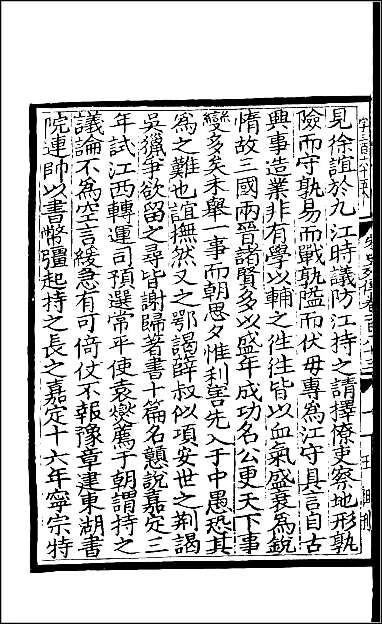 見徐誼於九江時議防江持之請擇僚吏察地形孰
險而守孰易而戰孰隘而伏毋專為江守具言自古
興事造業非有學以輔之徃徃皆以血氣盛衰為銳
惰故三國兩晉諸賢多以盛年成功名公更天下事
變多矣未舉一事而朝思夕惟利害先入于中愚恐其
為之難也誼撫然又之鄂謁薛叔似項安世之荆謁
吳獵爭欲留之尋皆謝歸著書十篇名戇說嘉定三
年試江西轉運司預選常平使袁燮薦于朝謂持之
議論不為空言緩急有可倚仗不報豫章建東湖書
院連帥以書幣彊起持之長之嘉定十六年寧宗特